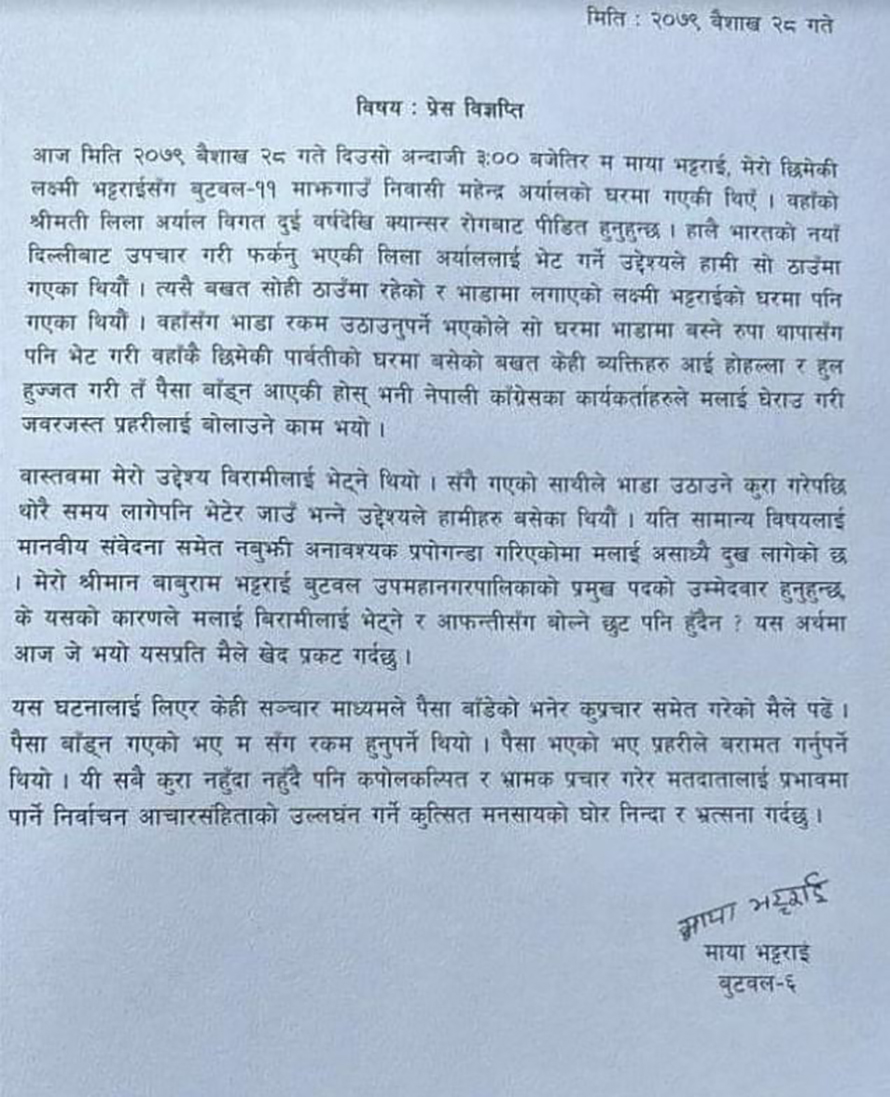 मिति : २०७९ बैशाख २८ गते
विषय : प्रेस विज्ञप्ति
आज मिति २०७९ बैशाख २८ गते दिउसो अन्दाजी ३:०० बजेतिर म माया भट्टराई, मेरो छिमेकी
लक्ष्मी भट्टराईसँग बुटवल-११ माझगाउँ निवासी महेन्द्र अर्यालको घरमा गएकी थिएँ । वहाँको
श्रीमती लिला अर्याल विगत दुई वर्षदेखि क्यान्सर रोगबाट पीडित हुनुहुन्छ । हालै भारतको नयाँ
दिल्लीबाट उपचार गरी फर्कनु भएकी लिला अर्याललाई भेट गर्ने उद्देश्यले हामी सो ठाउँमा
गएका थियौं । त्यसै बखत सोही ठाउँमा रहेको र भाडामा लगाएको लक्ष्मी भट्टराईको घरमा पनि
गएका थियौं । वहाँसँग भाडा रकम उठाउनुपर्ने भएकोले सो घरमा भाडामा बस्ने रुपा थापासँग
पनि भेट गरी वहाँकै छिमेकी पार्वतीको घरमा बसेको बखत केही व्यक्तिहरु आई होहल्ला र हुल
हुज्जत गरी तँ पैसा बाँड्न आएकी होस् भनी नेपाली काँग्रेसका कार्यकर्ताहरुले मलाई घेराउ गरी
जवरजस्त प्रहरीलाई बोलाउने काम भयो ।
वास्तवमा मेरो उद्देश्य विरामीलाई भेट्ने थियो । सँगै गएको साथीले भाडा उठाउने कुरा गरेपछि
थोरै समय लागेपनि भेटेर जाउँ भन्ने उद्देश्यले हामीहरु बसेका थियौं । यति सामान्य विषयलाई
मानवीय संवेदना समेत नबुझी अनावश्यक प्रपोगन्डा गरिएकोमा मलाई असाध्यै दुख लागेको छ
। मेरो श्रीमान बाबुराम भट्टराई बुटवल उपमहानगरपालिकाको प्रमुख पदको उम्मेदबार हुनुहुन्छ,
के यसको कारणले मलाई बिरामीलाई भेट्ने र आफन्तीसँग बोल्ने छुट पनि हुँदैन ? यस अर्थमा
आज जे भयो यसप्रति मैले खेद प्रकट गर्दछु ।
यस घटनालाई लिएर केही सञ्चार माध्यमले पैसा बाँडेको भनेर कुप्रचार समेत गरेको मैले पढें ।
पैसा बाँड्न गएको भए म सँग रकम हुनुपर्ने थियो । पैसा भएको भए प्रहरीले बरामत गर्नुपर्ने
थियो । यी सबै कुरा नहुँदा नहुँदै पनि कपोलकल्पित र भ्रामक प्रचार गरेर मतदातालाई प्रभावमा
पार्ने निर्वाचन आचारसंहिताको उल्लघंन गर्ने कुत्सित मनसायको घोर निन्दा र भ्रत्सना गर्दछु ।
माया भट्टराई
माया भट्टराई
बुटवल-६